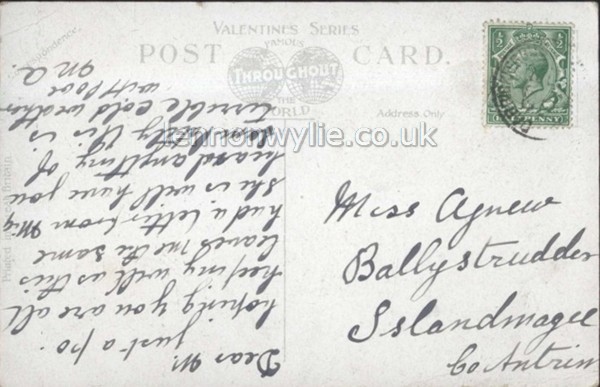 VALENTINES SERIES
POST CARD.
FAMOUS
THROUGHOUT
THE
WORLD
Address Only
Correspondence.
Printed in Great Britain
½ ½
PENNY
kennonwylie.co.uk
Miss Agnew
Ballystrudder
Islandmagee
Co Antrim
Dear M.
just a po.
hoping you are all
keeping well as this
leaves me the same
had a letter from
she is well have you
heard anything of
this is
terrible cold weather
with poor
M A